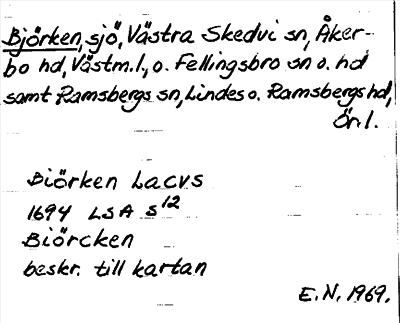 Björken, sjö, Västra Skedvi sn, Åker-
bo hd, Västm.l., o. Fellingsbro sn o. hd
samt Ramsbergs sn, Lindes o. Ramsbergs hd,
Ör.l.
Biörken Lacvs
1694 LSA S12
Biörcken
beskr. till kartan
E.N. 1969.